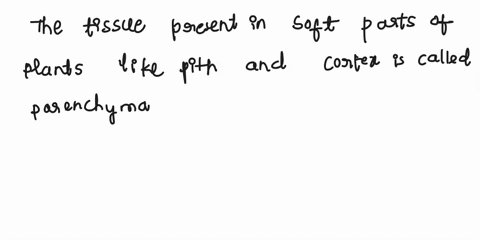 The tissue present in soft parts of
plants like pith and cortex is called
parenchyma